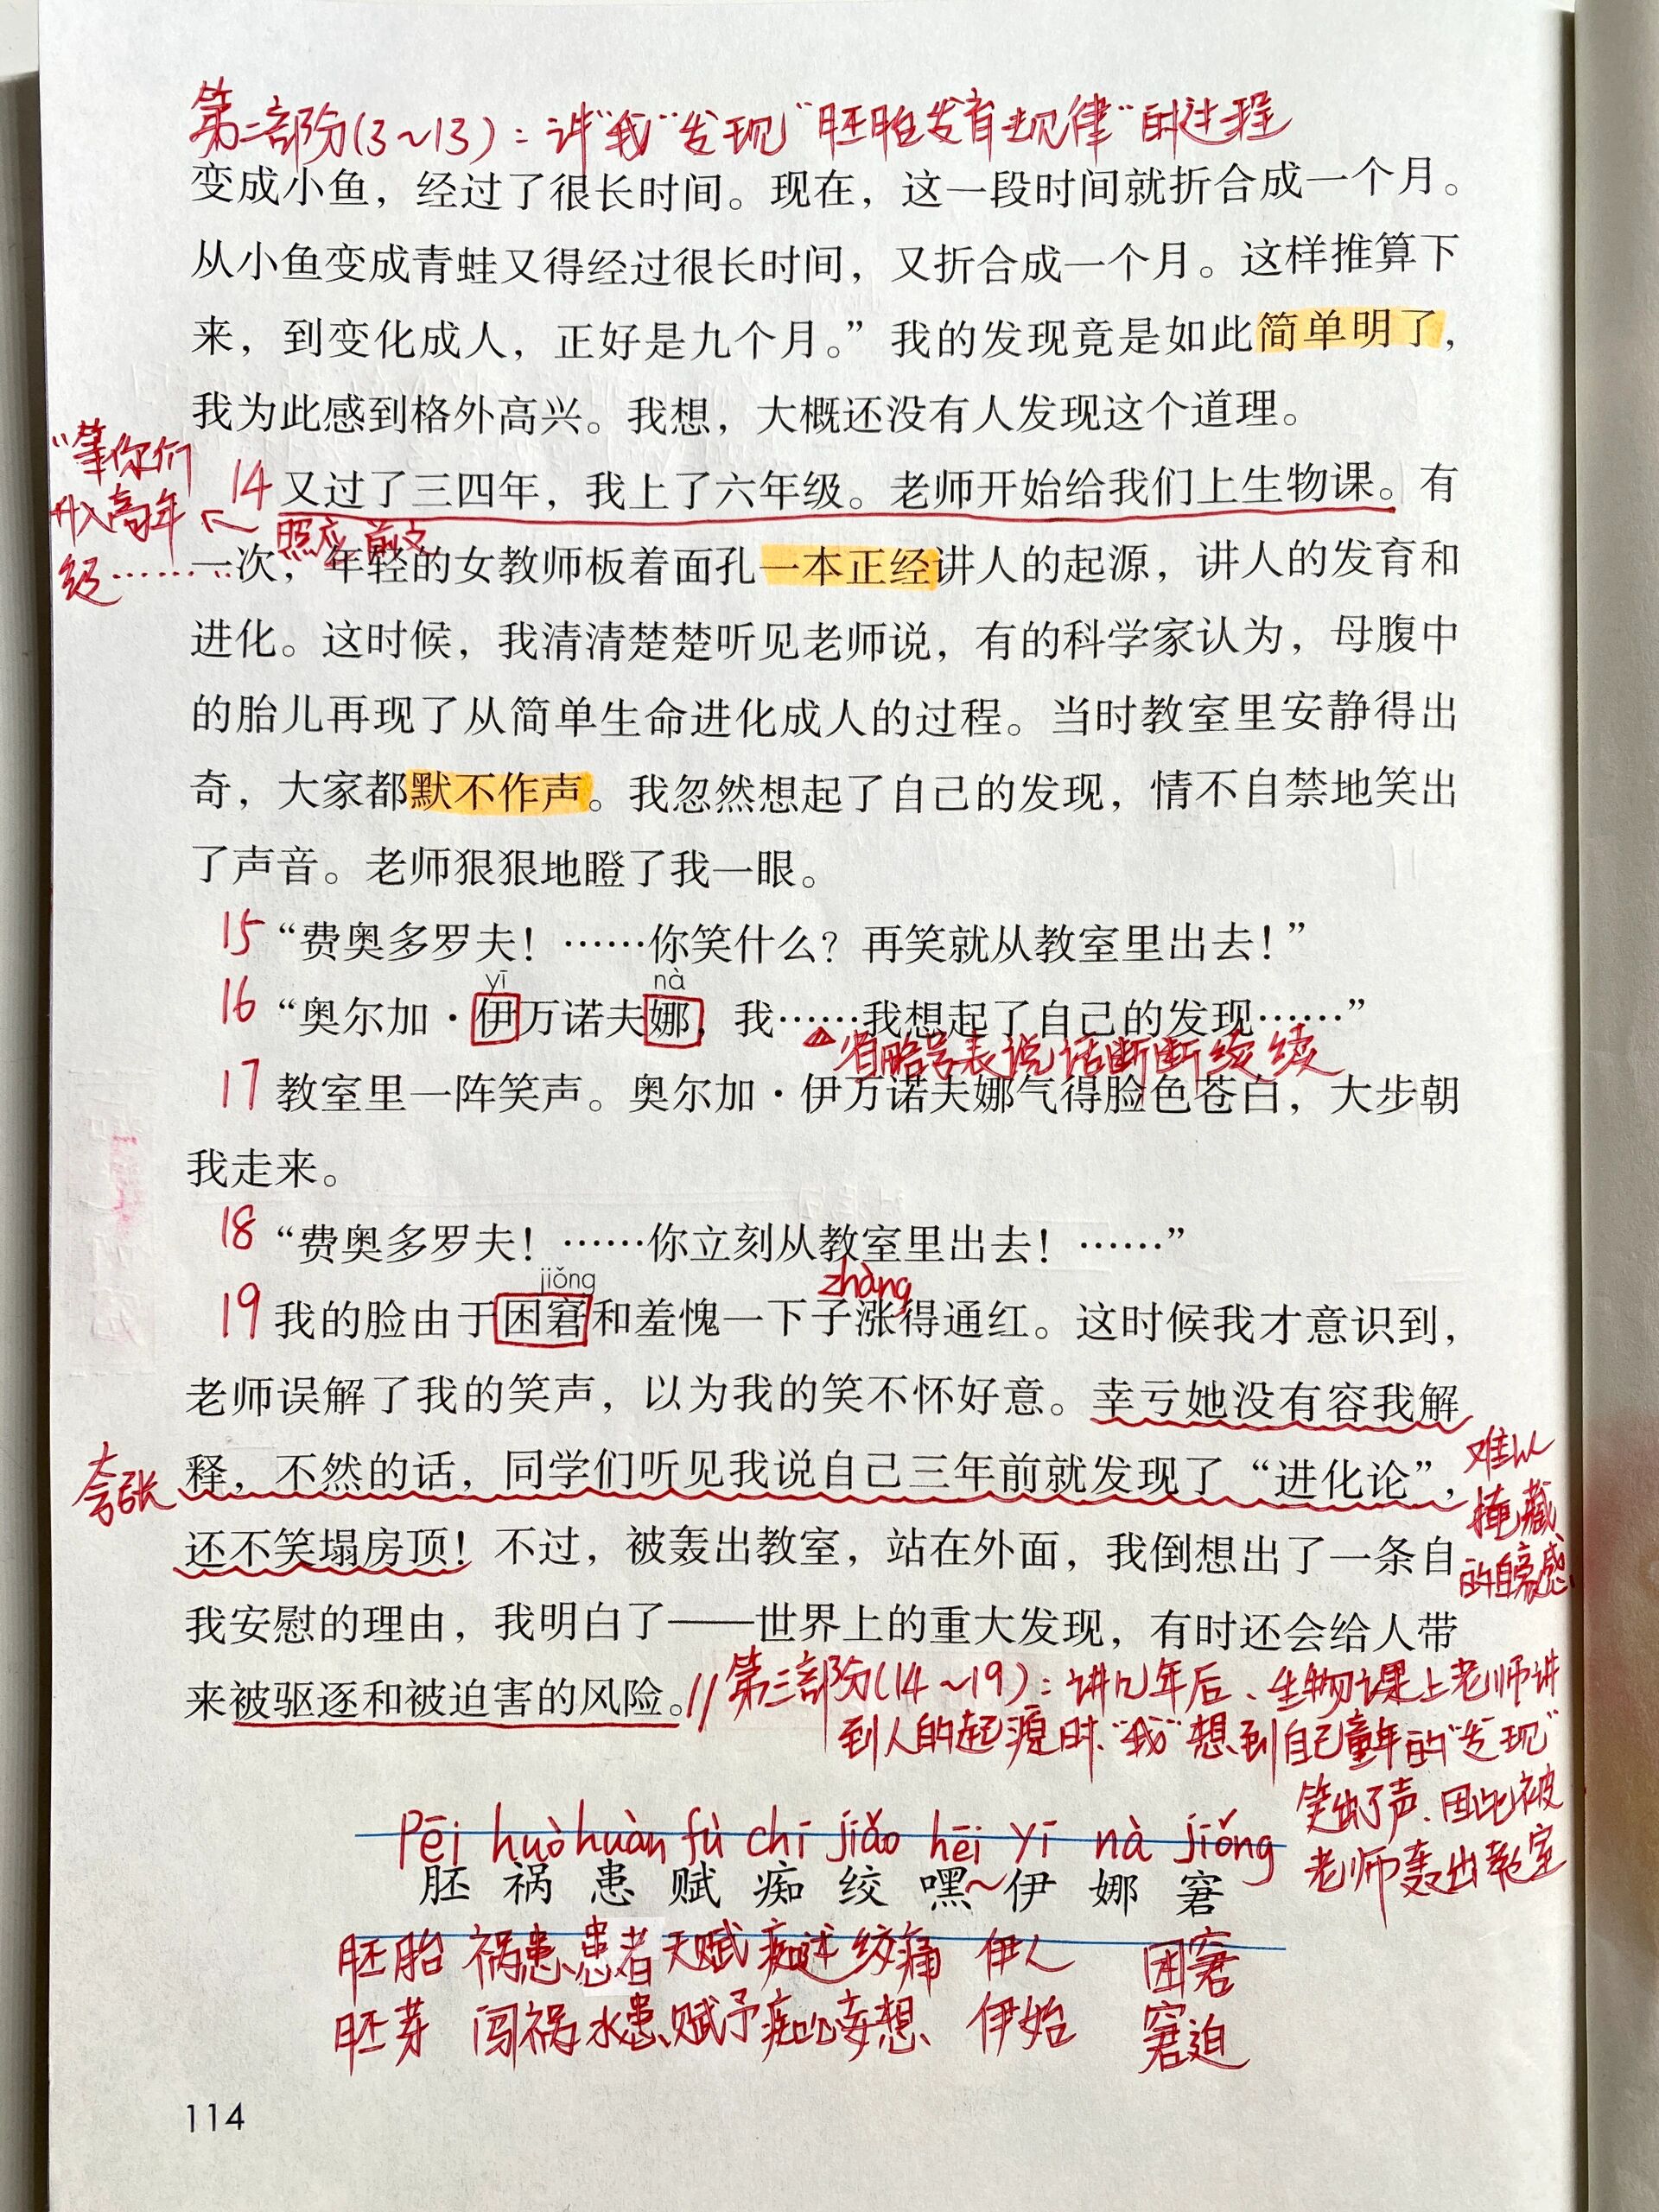 第二部分(3~13)：讲“我”发现“胚胎发育规律”的过程
变成小鱼，经过了很长时间。现在，这一段时间就折合成一个月。
从小鱼变成青蛙又得经过很长时间，又折合成一个月。这样推算下
来，到变化成人，正好是九个月。”我的发现竟是如此简单明了，
我为此感到格外高兴。我想，大概还没有人发现这个道理。
“等你们
升入高年
级……
14 又过了三四年，我上了六年级。老师开始给我们上生物课。有
照应前文
一次，年轻的女教师板着面孔一本正经讲人的起源，讲人的发育和
进化。这时候，我清清楚楚听见老师说，有的科学家认为，母腹中
的胎儿再现了从简单生命进化成人的过程。当时教室里安静得出
奇，大家都默不作声。我忽然想起了自己的发现，情不自禁地笑出
了声音。老师狠狠地瞪了我一眼。
15 “费奥多罗夫！……你笑什么？再笑就从教室里出去！”
yī nà
16 “奥尔加·伊万诺夫娜，我……我想起了自己的发现……”
省略号表说话断断续续
17 教室里一阵笑声。奥尔加·伊万诺夫娜气得脸色苍白，大步朝
我走来。
18 “费奥多罗夫！……你立刻从教室里出去！……”
jiǒng zhàng
19 我的脸由于困窘和羞愧一下子涨得通红。这时候我才意识到，
老师误解了我的笑声，以为我的笑不怀好意。幸亏她没有容我解
夸张 释，不然的话，同学们听见我说自己三年前就发现了“进化论”，
还不笑塌房顶！不过，被轰出教室，站在外面，我倒想出了一条自
难以
掩藏
的自豪感
我安慰的理由，我明白了——世界上的重大发现，有时还会给人带
来被驱逐和被迫害的风险。// 第三部分(14~19)：讲几年后、生物课上老师讲
到人的起源时、“我”想到自己童年的“发现”
笑出了声、因此被
老师轰出教室
pēi huò huàn fù chī jiǎo hēi yī nà jiǒng
胚 祸 患 赋 痴 绞 嘿~伊 娜 窘
胚胎 祸患、患者 天赋 痴迷 绞痛 伊人 困窘
胚芽 闯祸 水患、赋予 痴心妄想、 伊始 窘迫
114